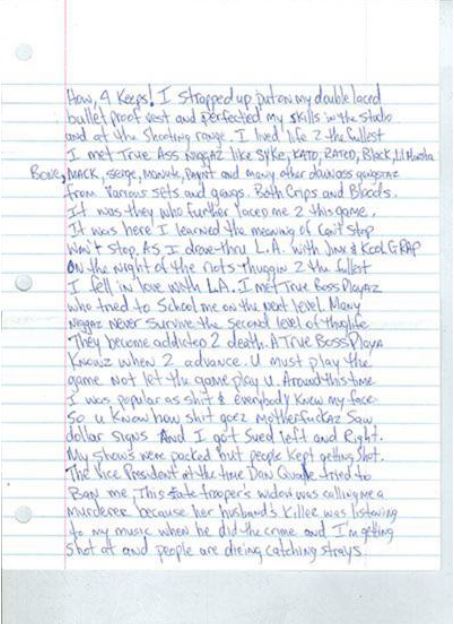 How, 4 Keeps! I strapped up put on my double laced
bullet proof vest and perfected my skills in the studio
and at the shooting range. I lived life 2 the fullest
I met True Ass Niggaz like Syke, KATO, RATED, Black, Lil Marsha
Bone, MACK, serge, Monute, and many other downass gangstaz
from various sets and gangs. Both Crips and Bloods.
It was they who further laced me 2 this game.
It was here I learned the meaning of Can't stop
Won't stop. As I drove thru L.A. with Jinx & Kool G RAP
on the night of the riots Thuggin 2 the fullest
I fell in love with LA. I met True Boss Playaz
who tried to School me on the next level. Many
Niggaz never survive the second level of thuglife
They become addicted 2 death. A True Boss Playa
Knowz when 2 advance. U must play the
game not let the game play U. Around this time
I was popular as shit & everybody knew my face.
So U know how shit goez motherfuckaz saw
dollar signs And I got sued left and Right.
My shows were packed but people kept getting shot.
The Vice President at the time Dan Quayle tried to
Ban me. This state trooper's widow was calling me a
murderer because her husband's killer was listening
to my music when he did the crime and I'm getting
shot at and people are dieing catching strays